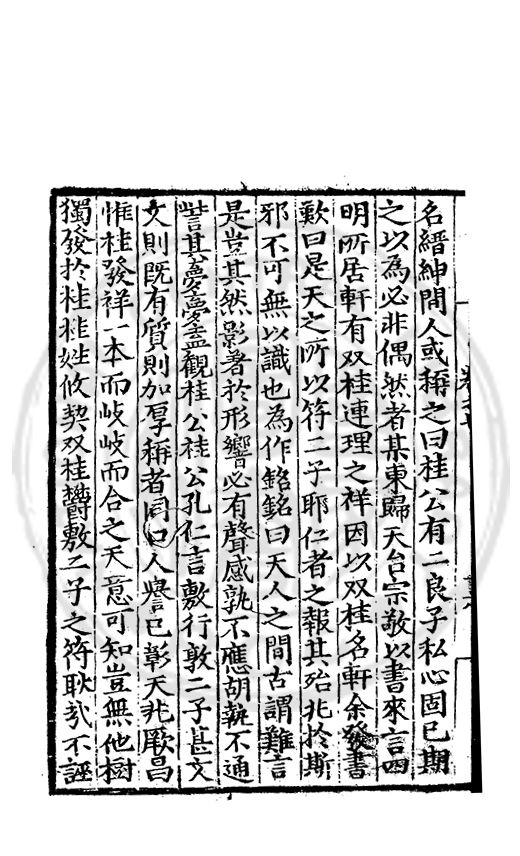 名縉紳間人或稱之曰桂公有二良子私心固已期
之以為必非偶然者某東歸天台宗敬以書來言四
明所居軒有双桂連理之祥因以双桂名軒余發書
歎曰是天之所以符二子耶仁者之報其殆兆於斯
邪不可無以識也為作銘銘曰天人之間古謂難言
是豈其然影著於形響必有聲感孰不應胡執不通
訾其夢夢盍觀桂公桂公孔仁言敷行敦二子甚文
文則既有質則加厚稱者同口人譽已彰天兆厥昌
惟桂發祥一本而岐岐而合之天意可知豈無他樹
獨發於桂桂姓攸契双桂欝敷二子之符耿㢤不誣